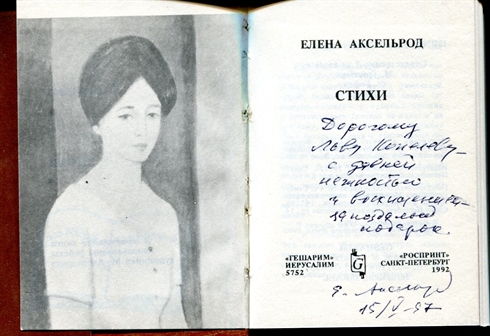 ЕЛЕНА АКСЕЛЬРОД
СТИХИ
Дорогому
Льву Копелеву –
с давней
нежностью
и восхищением –
запоздалый
подарок.
"ГЕШАРИМ"
ИЕРУСАЛИМ
5752
G
"РОСПРИНТ"
САНКТ-ПЕТЕРБУРГ
1992
Е. Аксельрод
15/V 97